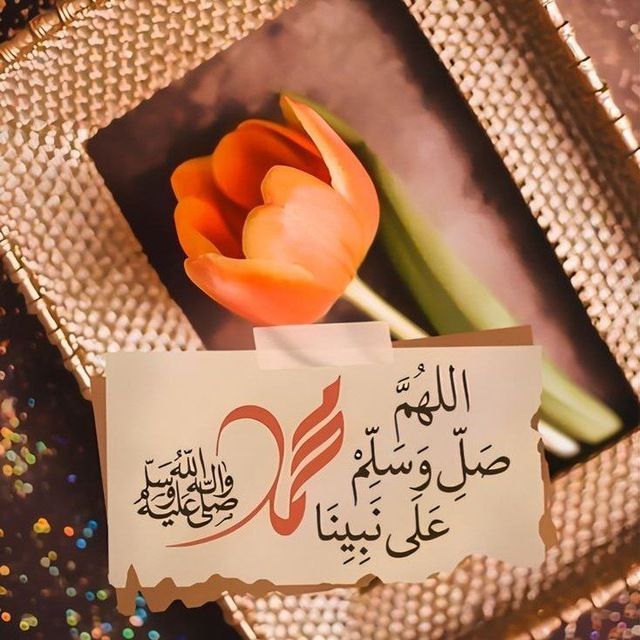 اللهُمَّ
صَلِّ وَسَلِّمْ
عَلَى نَبِينَا
محمد
صلى الله عليه وآله وسلم